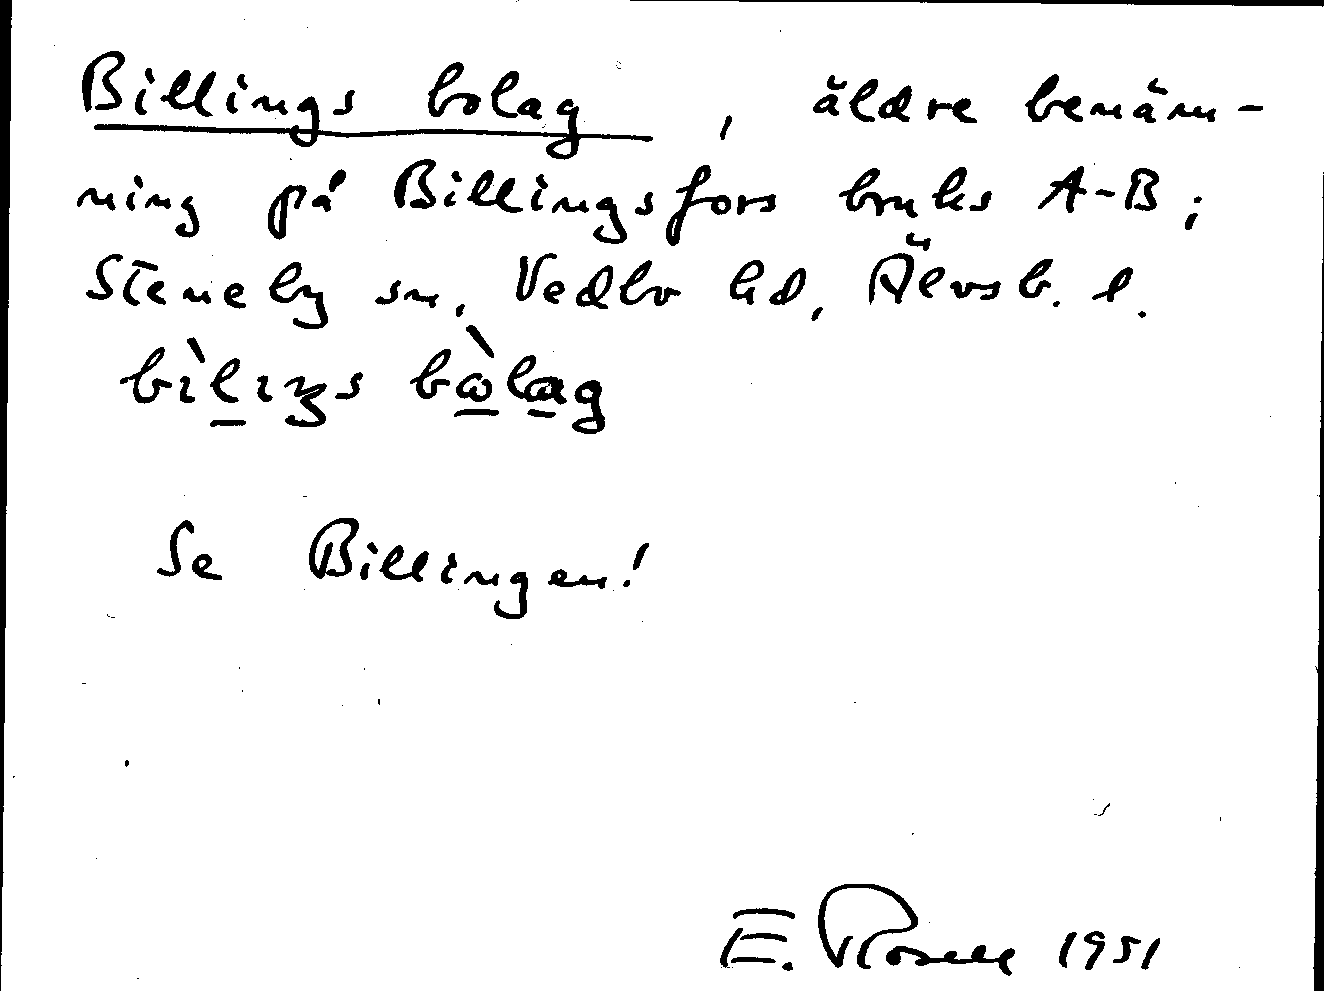 Billings bolag, äldre benäm-
ning på Billingsfors bruks A-B;
Steneby sn, Vedbo hd, Älvsb. l.
bìlıŋs bòlag
Se Billingen!
E. Rosell 1951